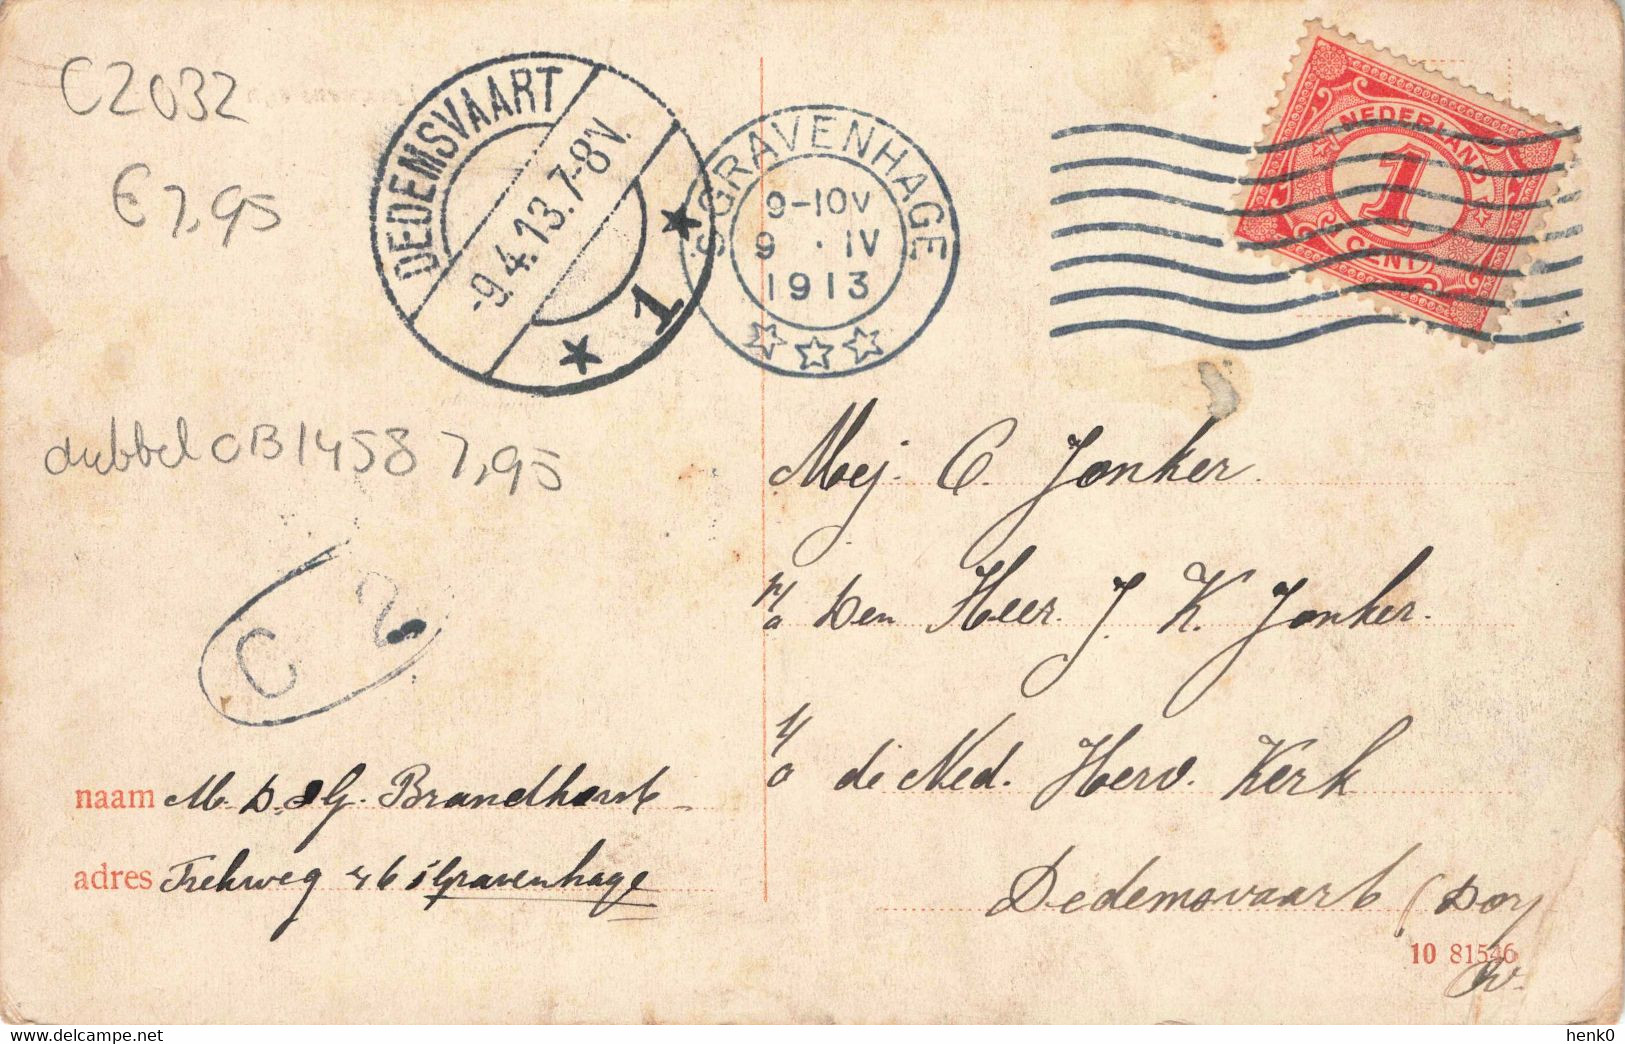 C2032
€ 7,95
DEDEMSVAART
-9.4.13.7-8V.
1
'S GRAVENHAGE
9-10V
9 . IV
1913
NEDERLAND
1
CENT
dubbel CB1458 7,95
C 2
Mej. C. Jonker.
p/a Den Heer. J. K. Jonker.
t/o de Ned. Herv. Kerk
Dedemsvaart (Dor
naam M. D. G. Brandhorst
adres Trekweg 46 's Gravenhage
10 81546
henk0